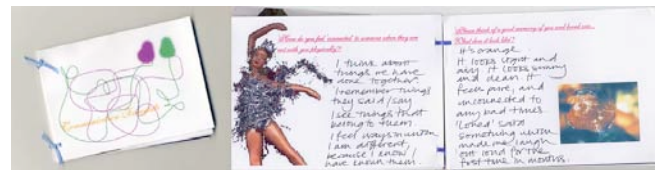 How do you feel 'connected' to someone when they are
not with you physically?
I think about
things we have
done together.
I remember things
they said / say
I see things that
belong to them.
I feel ways in which
I am different,
because I know /
have known them.
Please think of a good memory of you and loved one...
What does it look like?
It's orange.
It looks bright and
airy. It looks sunny
and clean. It
feels pure, and
unconnected to
any bad times.
said
something which
made me laugh
out loud for the
first time in months.